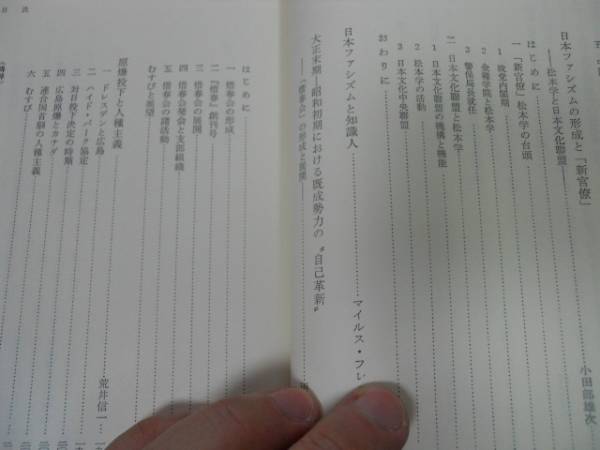 日本ファシズムの形成と「新官僚」
――松本学と日本文化聯盟――
小田部雄次
はじめに
一 「新官僚」松本学の台頭
1 政党内閣期
2 金雞学院と松本学
3 警保局長就任
二 日本文化聯盟と松本学
1 日本文化聯盟の機構と機能
2 松本学の活動
3 日本文化中央聯盟
おわりに
日本ファシズムと知識人
マイルス・フレ
大正末期―昭和初期における既成勢力の〝自己革新〟
――「惜春会」の形成と展開――
はじめに
一 惜春会の形成
二 『惜春』創刊号
三 惜春会の展開
四 惜春会発会と支部組織
五 惜春会の諸活動
むすびと展望
原爆投下と人種主義
荒井信一
一 ドレスデンと広島
二 ハイド・パーク協定
三 対日投下決定の時期
四 広島原爆とカナダ
五 連合国首脳の人種主義
六 むすび
目次